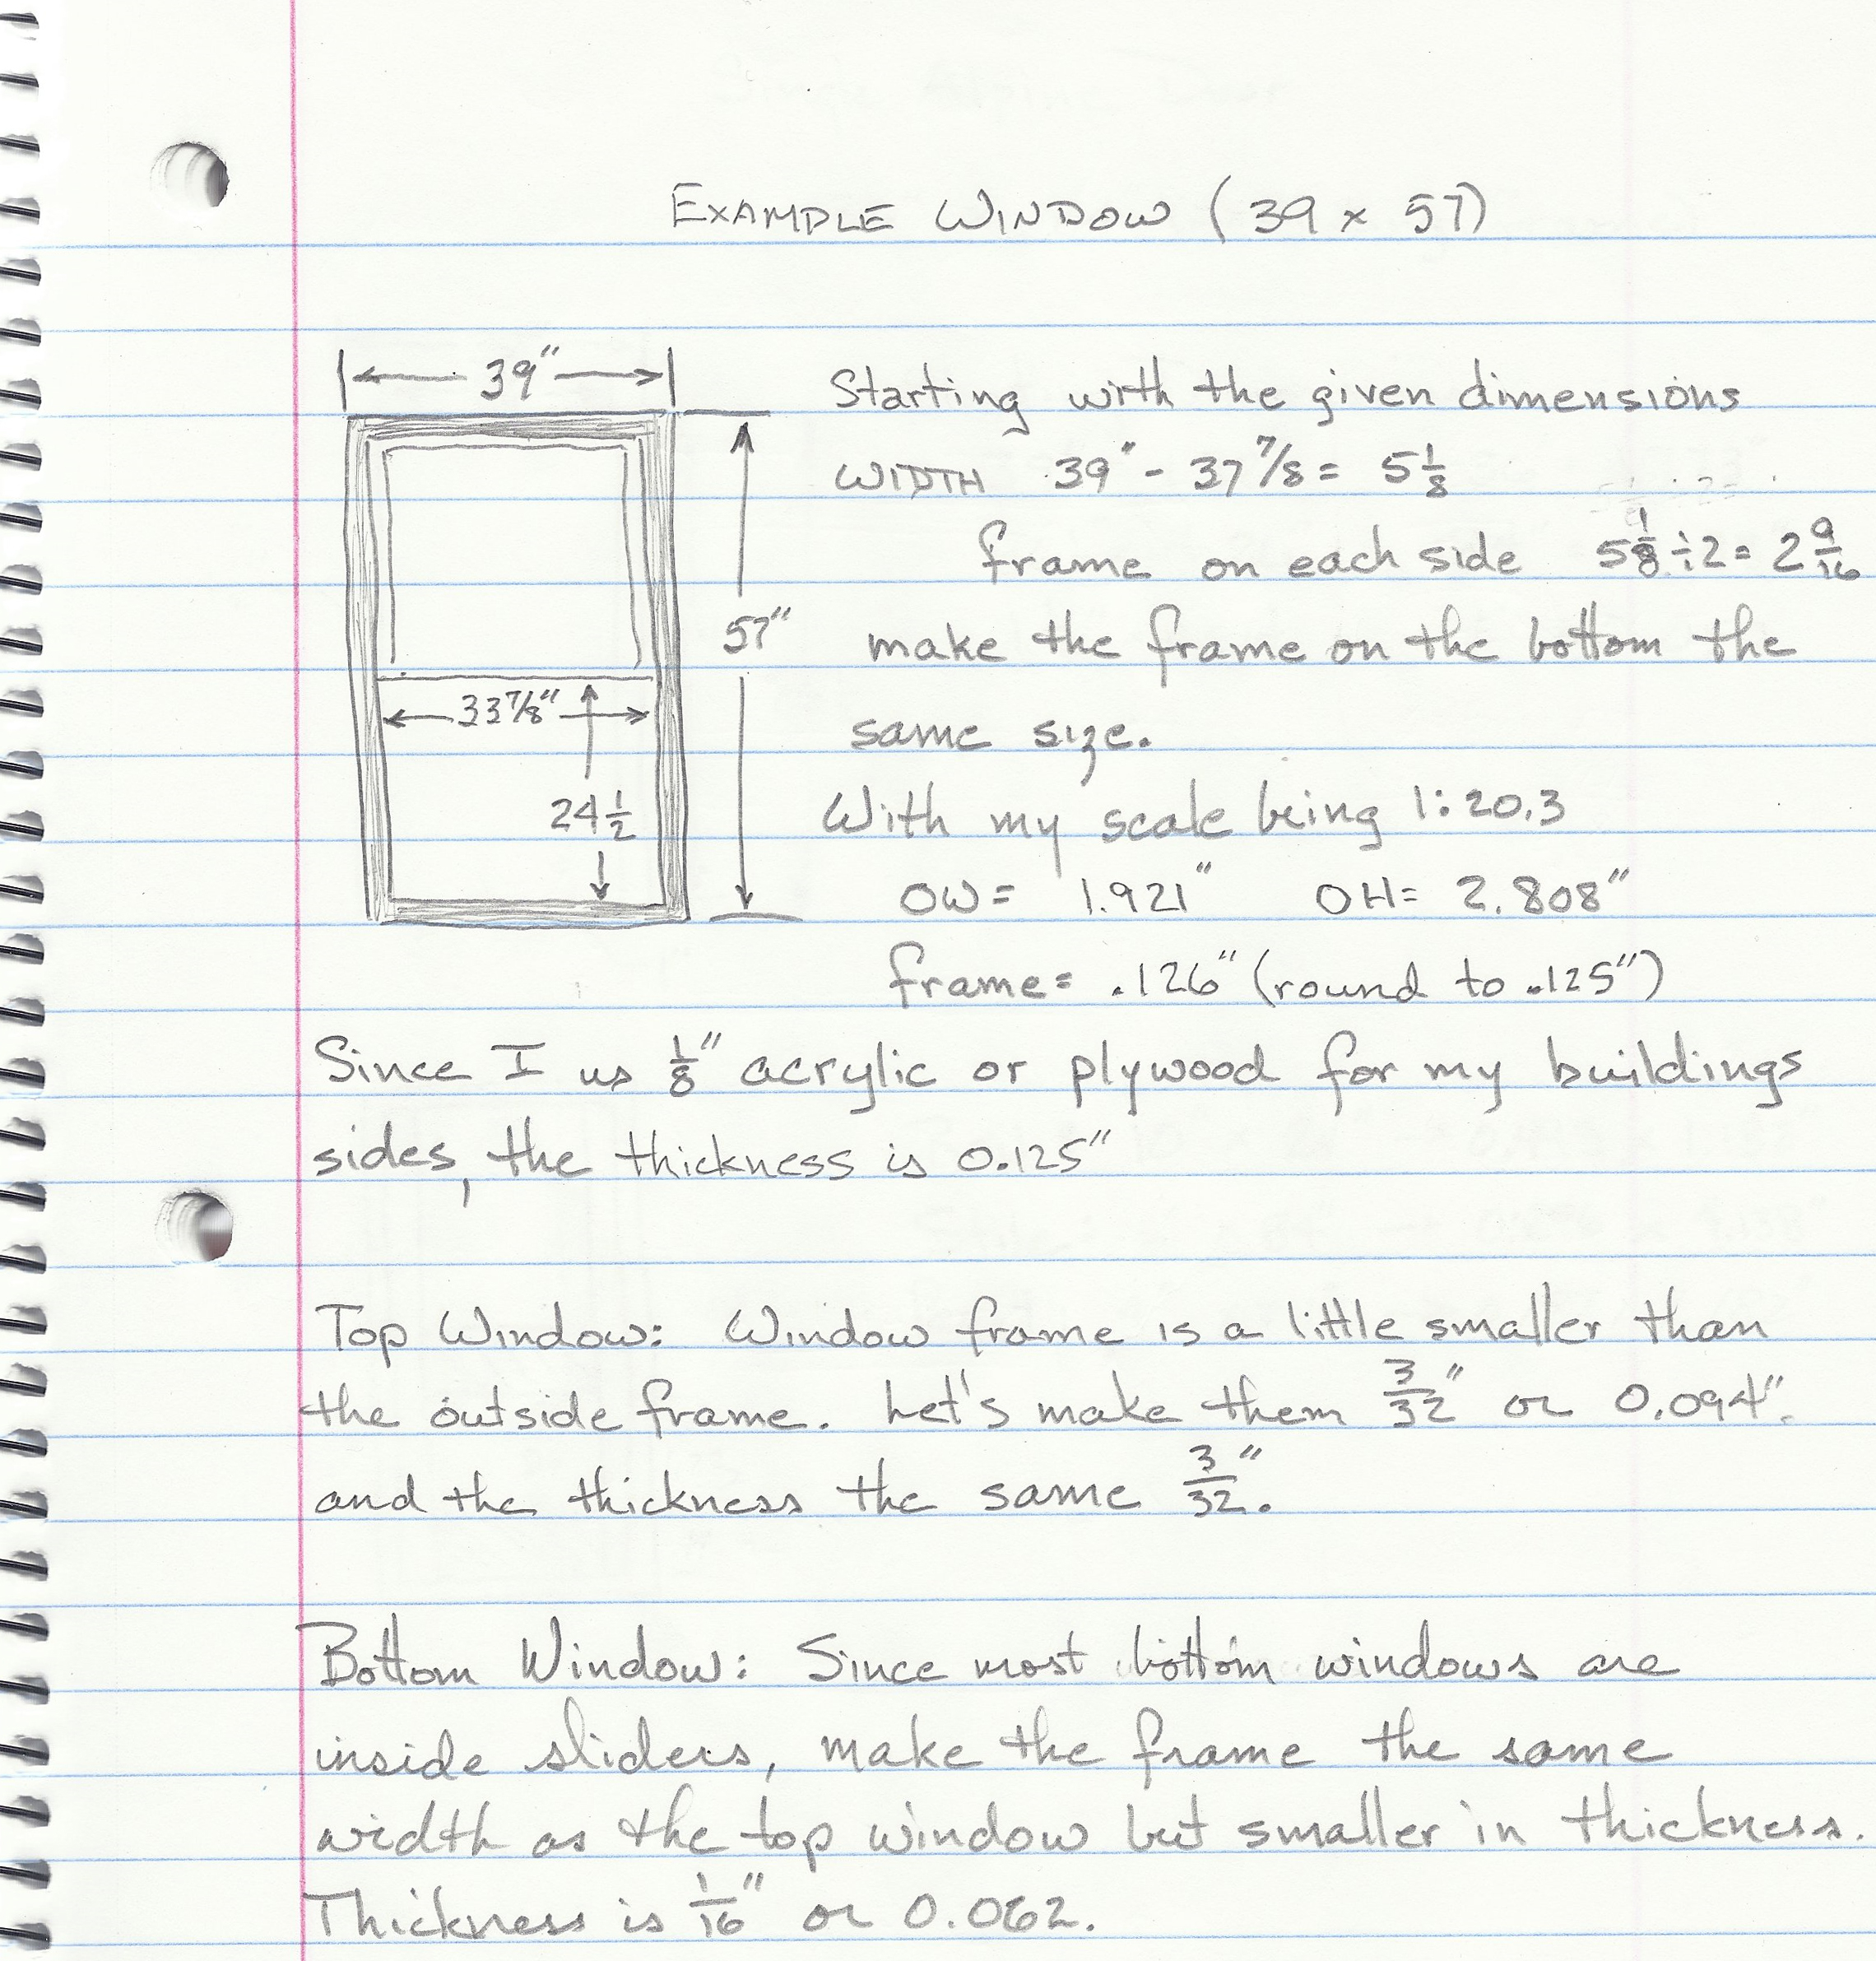 EXAMPLE WINDOW (39 x 57)
39"
57"
33 7/8"
24 1/2
Starting with the given dimensions
WIDTH 39" - 37 7/8 = 5 1/8
frame on each side 5 1/8 ÷ 2 = 2 9/16
make the frame on the bottom the
same size.
With my scale being 1:20.3
OW = 1.921" OH = 2.808"
frame = .126" (round to .125")
Since I us 1/8" acrylic or plywood for my buildings
sides, the thickness is 0.125"
Top Window: Window frame is a little smaller than
the outside frame. Let's make them 3/32" or 0.094".
and the thickness the same 3/32".
Bottom Window: Since most bottom windows are
inside sliders, make the frame the same
width as the top window but smaller in thickness.
Thickness is 1/16" or 0.062.